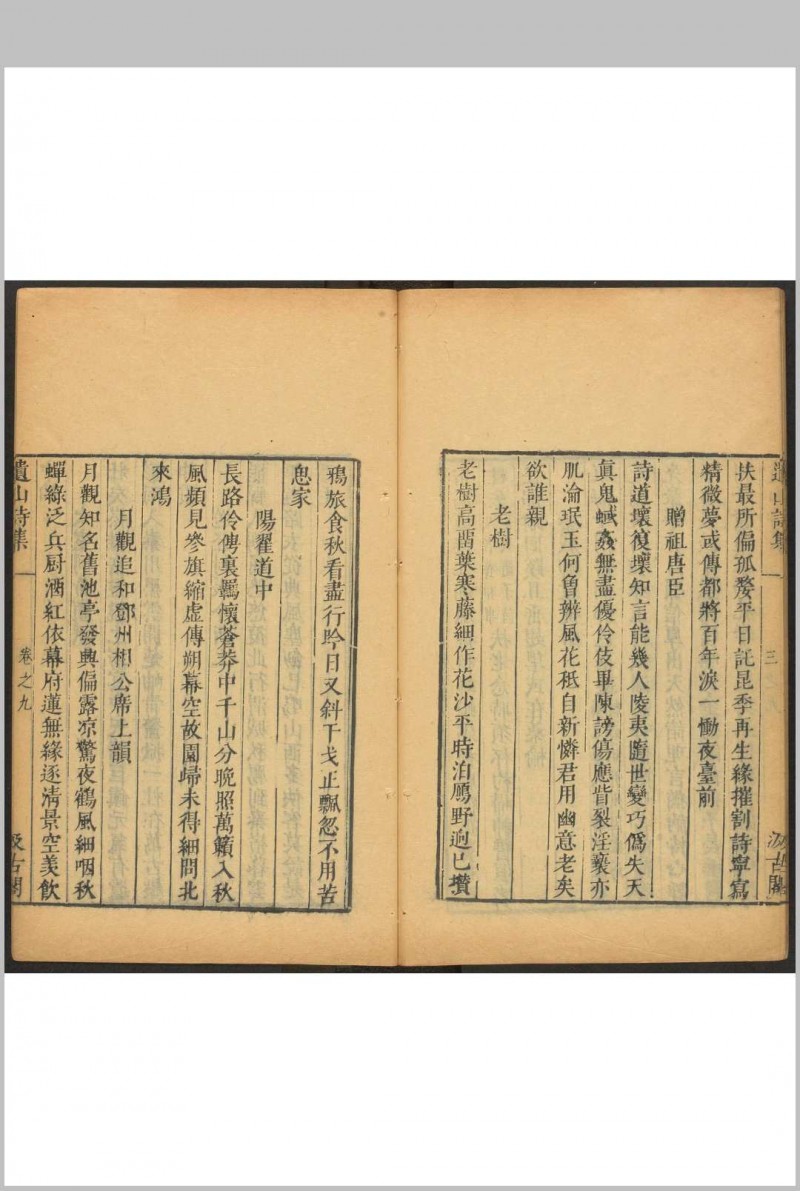 遺山詩集
三
汲古閣
扶最所偏孤嫠平日託昆季再生緣摧割詩寧寫
精微夢或傳都將百年淚一慟夜臺前
贈祖唐臣
詩道壞復壞知言能幾人陵夷隨世變巧僞失天
眞鬼蜮姦無盡優伶伎畢陳謗傷應眥裂淫褻亦
肌淪珉玉何曾辨風花秪自新憐君用幽意老矣
欲誰親
老樹
老樹高留葉寒藤細作花沙平時泊鴈野逈已攢
鴉旅食秋看盡行吟日又斜干戈正飄忽不用苦
思家
陽翟道中
長路伶俜裏羈懷蒼莽中千山分晚照萬籟入秋
風頻見參旗縮虛傳朔幕空故園歸未得細問北
來鴻
月觀追和鄧州相公席上韻
月觀知名舊池亭發興偏露凉驚夜鶴風細咽秋
蟬綠泛兵厨酒紅依幕府蓮無緣逐淸景空羡飲
遺山詩集
卷之九
汲古閣